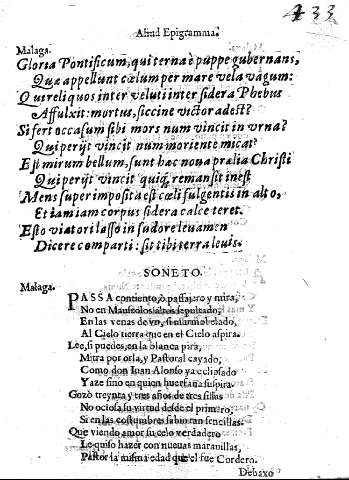 433
Aliud Epigramma.
Malaga.
Gloria Pontificum, qui ternæ puppe gubernans,
Quæ appellunt cœlum per mare vela vagum:
Qui reliquos inter veluti inter sidera Phebus
Affulxit: mortus, siccine victor adest?
Si fert occasum sibi mors num vincit in vrna?
Qui perijt vincit num moriente micat?
Est mirum bellum, sunt hac nona prælia Christi
Qui perijt vincit quiq; remansit inest
Mens super imposita est cœli fulgentis in alto,
Et iam iam corpus sidera calce teret.
Esto viatori lasso in sudore leuamen
Dicere comparti: sit tibi terra leuis.
SONETO.
Malaga.
PASSA contiento, ò passajero y mira,
No en Mauseolos altos sepultado,
En las venas de vn, si marmol elado,
Al Cielo tierra que en el Cielo aspira.
Lee, si puedes, en la blanca pira,
Mitra por orla, y Pastoral cayado,
Como don Iuan Alonso ya eclipsado
Yaze sino en quien huerfana suspira.
Gozò treynta y tres años de tres sillas
No ociosa su virtud desde el primero,
Si en las costumbres sabio tan senzillas.
Que viendo amor su celo verdadero
Le quiso hazer con nueuas marauillas,
Pastor la misma edad que el fue Cordero.
Debaxo